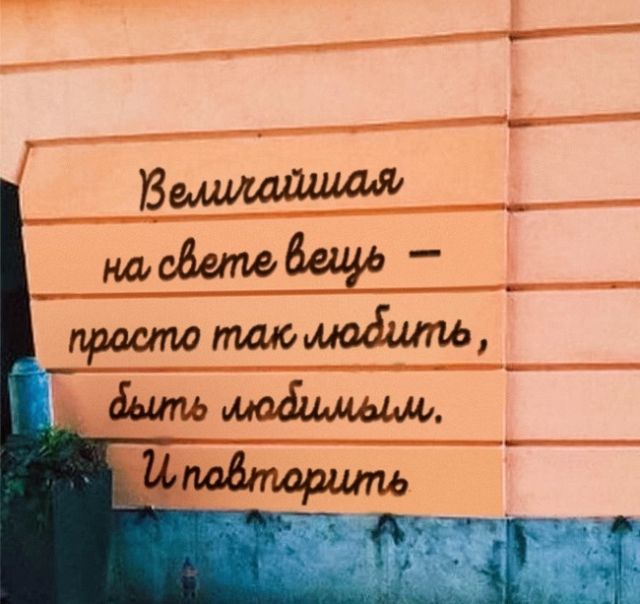 Величайшая
на свете вещь —
просто так любить,
быть любимым.
И повторить